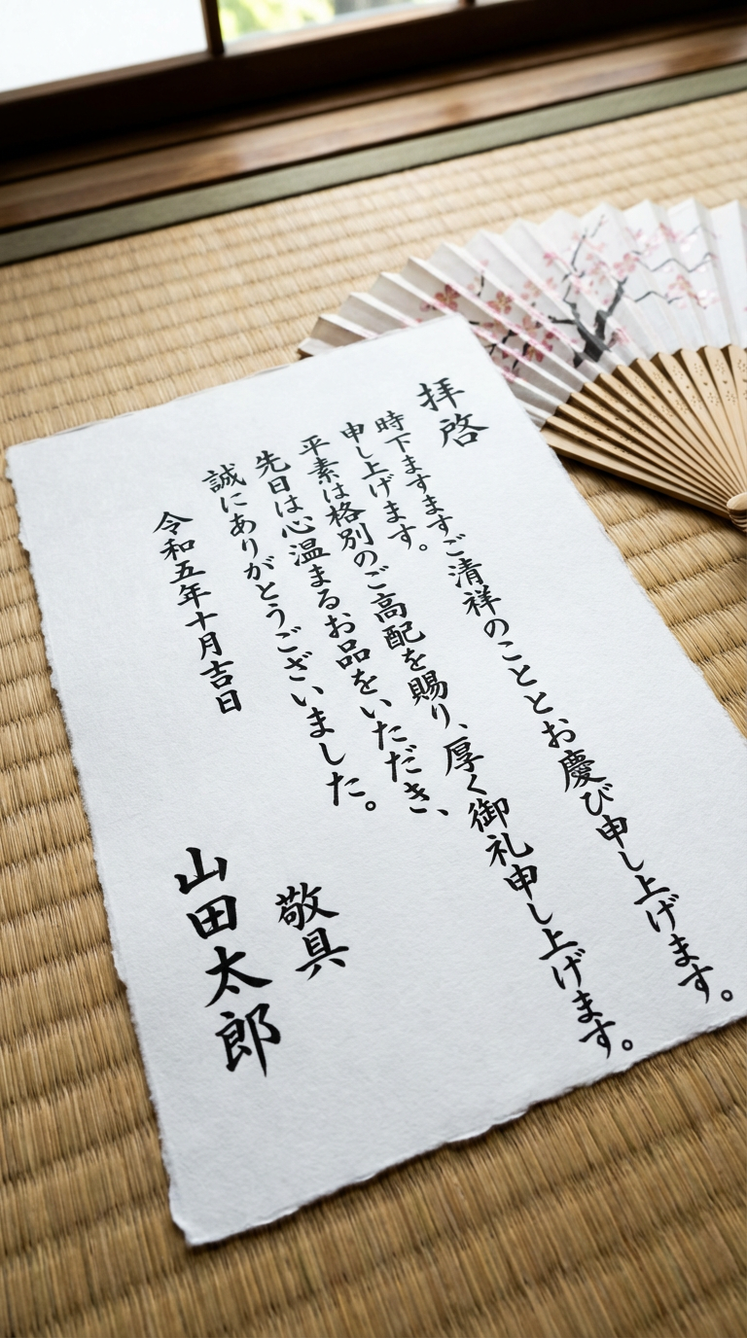 拝啓
時下ますますご清祥のこととお慶び申し上げます。
申し上げます。
平素は格別のご高配を賜り、厚く御礼申し上げます。
先日は心温まるお品をいただき、
誠にありがとうございました。
令和五年十月吉日
敬具
山田太郎